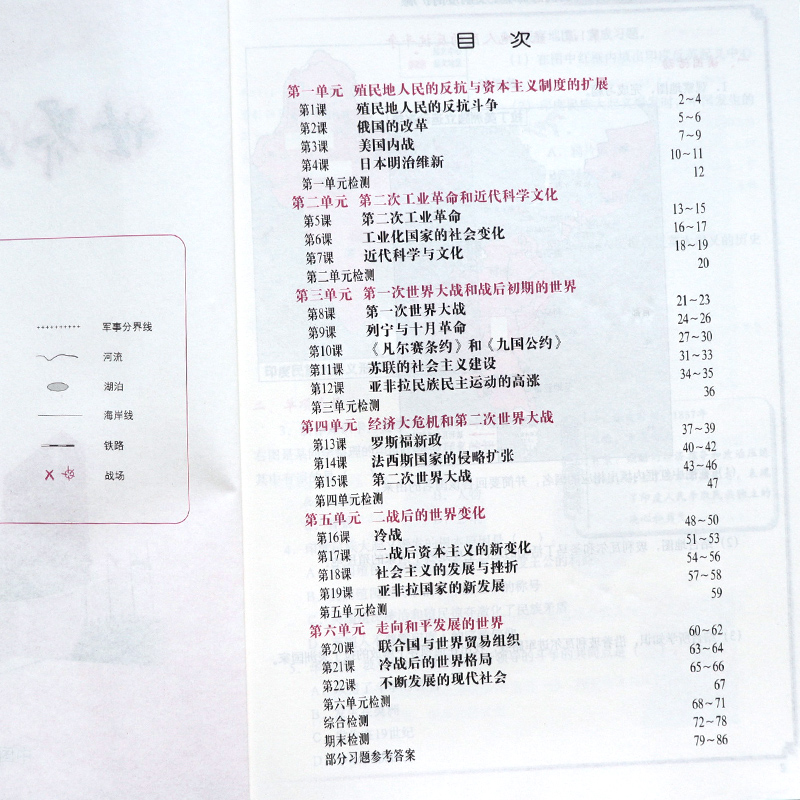 目 次
第一单元 殖民地人民的反抗与资本主义制度的扩展
第1课 殖民地人民的反抗斗争 2~4
第2课 俄国的改革 5~6
第3课 美国内战 7~9
第4课 日本明治维新 10~11
第一单元检测 12
第二单元 第二次工业革命和近代科学文化
第5课 第二次工业革命 13~15
第6课 工业化国家的社会变化 16~17
第7课 近代科学与文化 18~19
第二单元检测 20
第三单元 第一次世界大战和战后初期的世界
第8课 第一次世界大战 21~23
第9课 列宁与十月革命 24~26
第10课 《凡尔赛条约》和《九国公约》 27~30
第11课 苏联的社会主义建设 31~33
第12课 亚非拉民族民主运动的高涨 34~35
第三单元检测 36
第四单元 经济大危机和第二次世界大战
第13课 罗斯福新政 37~39
第14课 法西斯国家的侵略扩张 40~42
第15课 第二次世界大战 43~46
第四单元检测 47
第五单元 二战后的世界变化
第16课 冷战 48~50
第17课 二战后资本主义的新变化 51~53
第18课 社会主义的发展与挫折 54~56
第19课 亚非拉国家的新发展 57~58
第五单元检测 59
第六单元 走向和平发展的世界
第20课 联合国与世界贸易组织 60~62
第21课 冷战后的世界格局 63~64
第22课 不断发展的现代社会 65~66
第六单元检测 67
综合检测 68~71
期末检测 72~78
部分习题参考答案 79~86
军事分界线
河流
湖泊
海岸线
铁路
战场